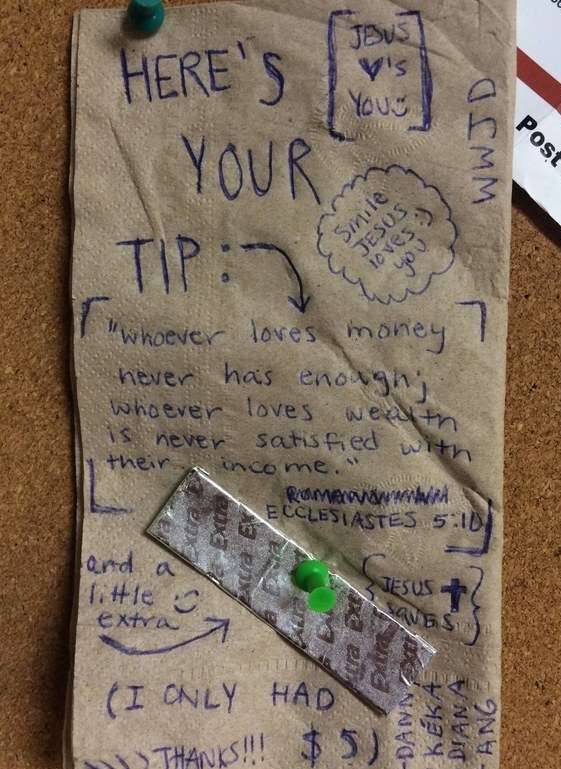 HERE'S
YOUR
TIP:
JESUS
♥'s
YOU
WWJD
Smile
JESUS
loves :)
you
"whoever loves money
never has enough;
whoever loves wealth
is never satisfied with
their income."
ECCLESIASTES 5:10
and a
little
extra
Extra Extra Extra Extra Extra Extra
{JESUS
SAVES}
(I ONLY HAD
$5)
>>>> THANKS!!!
-DANNY
KEKA
DIANA
-ANG
Post